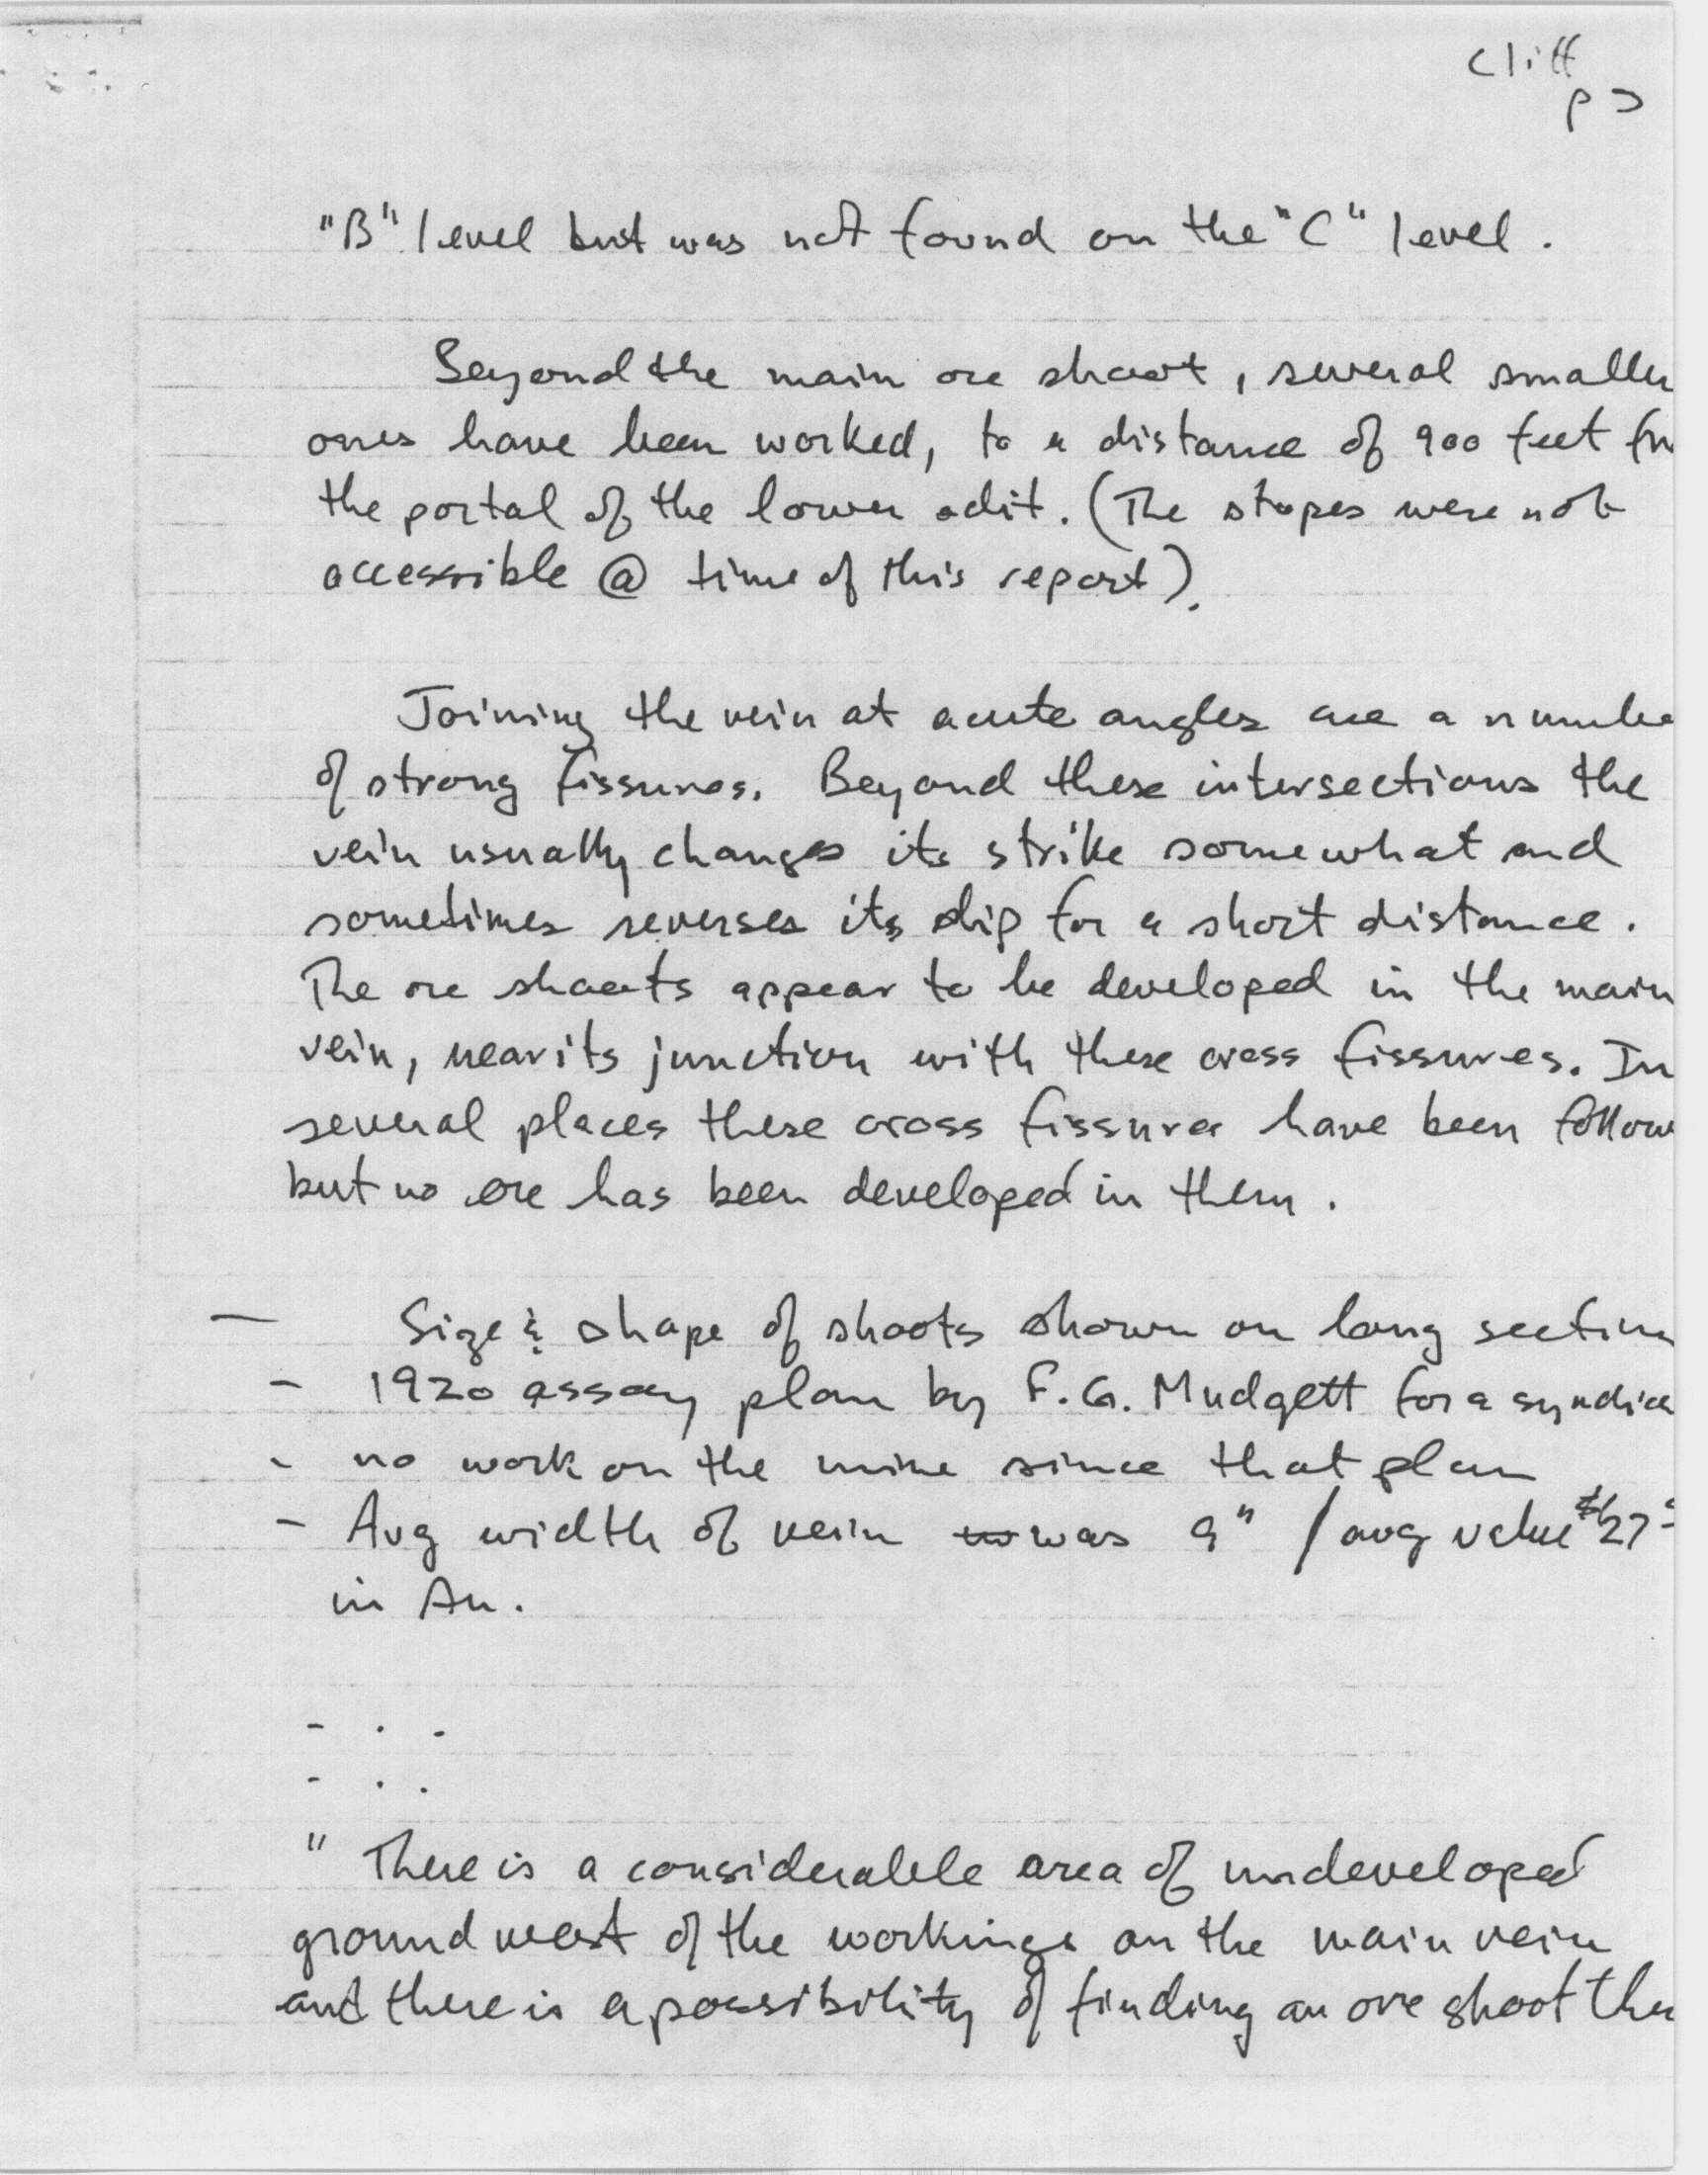 Cliff
p 3
"B" level but was not found on the "C" level.
Beyond the main ore shoot, several smaller
ones have been worked, to a distance of 900 feet
the portal of the lower adit. (The stopes were not
accessible @ time of this report).
Joining the vein at acute angles are a numbe
of strong fissures. Beyond these intersections the
vein usually changes its strike somewhat and
sometimes reverses its dip for a short distance.
The ore shoots appear to be developed in the main
vein, near its junction with these cross fissures. In
several places these cross fissures have been follow
but no ore has been developed in them.
— Size & shape of shoots shown on long section
- 1920 assay plan by F.G. Mudgett for a syndica
- no work on the mine since that plan
- Avg width of vein was 9" / avg value $27
in Au.
- . -
- . .
" There is a considerable area of undeveloped
ground west of the workings on the main vein
and there is a possibility of finding an ore shoot the